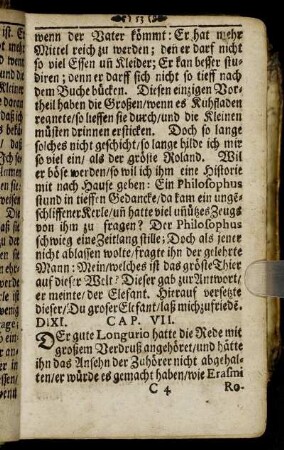 53
wenn der Vater kömmt: Er hat mehr
Mittel reich zu werden; den er darf nicht
so viel Essen uñ Kleider; Er kan besser stu-
diren; denn er darff sich nicht so tieff nach
dem Buche bücken. Diesen einzigen Vor-
theil haben die Großen/wenn es Kuhfladen
regnete/so lieffen sie durch/und die Kleinen
müsten drinnen ersticken. Doch so lange
solches nicht geschicht/so lange bilde ich mir
so viel ein/als der gröste Roland. Wil
er böse werden/so wil ich ihm eine Historie
mit nach Hause geben: Ein Philosophus
stund in tieffen Gedancke/da kam ein unge-
schliffener Kerle/uñ hatte viel uñützes Zeugs
von ihm zu fragen? Der Philosophus
schwieg eine Zeitlang stille; Doch als jener
nicht ablassen wolte/fragte ihn der gelehrte
Mann: Mein/welches ist das gröste Thier
auf dieser Welt? Dieser gab zur Antwort/
er meinte/der Elefant. Hierauf versetzte
dieser/Du groser Elefant/laß mich zufriedē.
DIXI. CAP. VII.
DEr gute Longurio hatte die Rede mit
großem Verdruß angehöret/und hätte
ihn das Ansehn der Zuhörer nicht abgehal-
ten/er würde es gemacht haben/wie Erasmi
C 4 Ro-